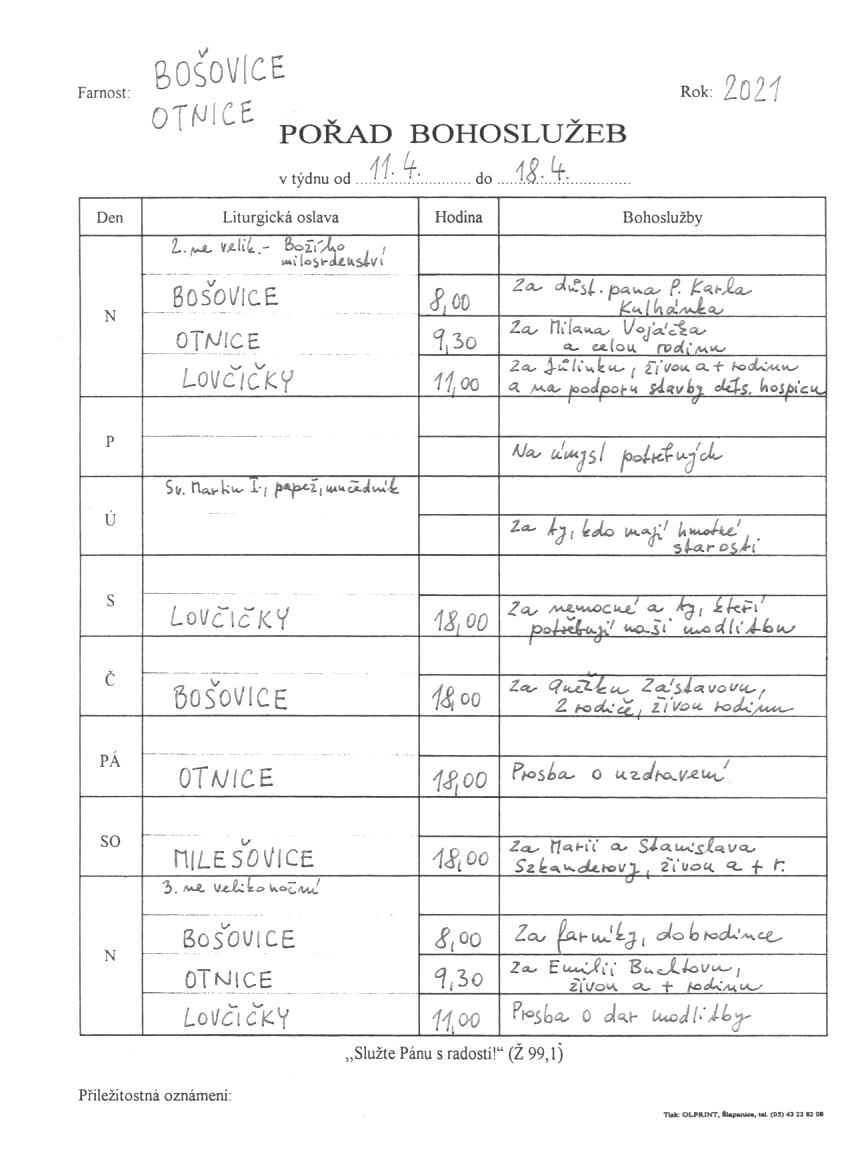 Farnost: BOŠOVICE
OTNICE
Rok: 2021
POŘAD BOHOSLUŽEB
v týdnu od 11.4. do 18.4.
Den Liturgická oslava Hodina Bohoslužby
N 2. ne velik. - Božího
milosrdenství
BOŠOVICE 8,00 Za důst. pana P. Karla
Kulhánka
OTNICE 9,30 Za Milana Vojáčka
a celou rodinu
LOVČIČKY 11,00 Za Jůlinku, živou a + rodinu
a na podporu stavby děts. hospicu
P Na úmysl potřebných
Ú Sv. Martin I., papež, mučedník
Za ty, kdo mají hmotné
starosti.
S LOVČIČKY 18,00 Za nemocné a ty, kteří
potřebují naši modlitbu
Č BOŠOVICE 18,00 Za Anežku Zástavovu,
2 rodiče, živou rodinu
PÁ OTNICE 18,00 Prosba o uzdravení
SO MILEŠOVICE 18,00 Za Marii a Stanislava
Szkanderovy, živou a + r.
N 3. ne velikonoční
BOŠOVICE 8,00 Za farníky, dobrodince
OTNICE 9,30 Za Emilii Buchtovu,
živou a + rodinu
LOVČIČKY 11,00 Prosba o dar modlitby
„Služte Pánu s radostí!“ (Ž 99,1)
Příležitostná oznámení:
Tisk: OLPRINT, Šlapanice, tel. (05) 43 22 82 08